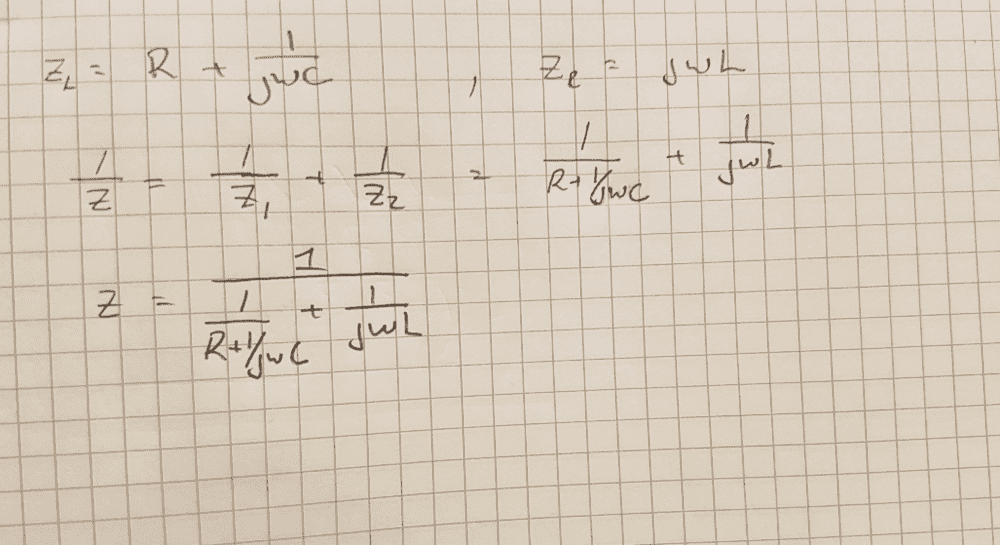 Z_L = R + 1/jωC , Z_2 = jωL
1/Z = 1/Z_1 + 1/Z_2 = 1/(R+1/jωC) + 1/jωL
Z = 1/(1/(R+1/jωC) + 1/jωL)